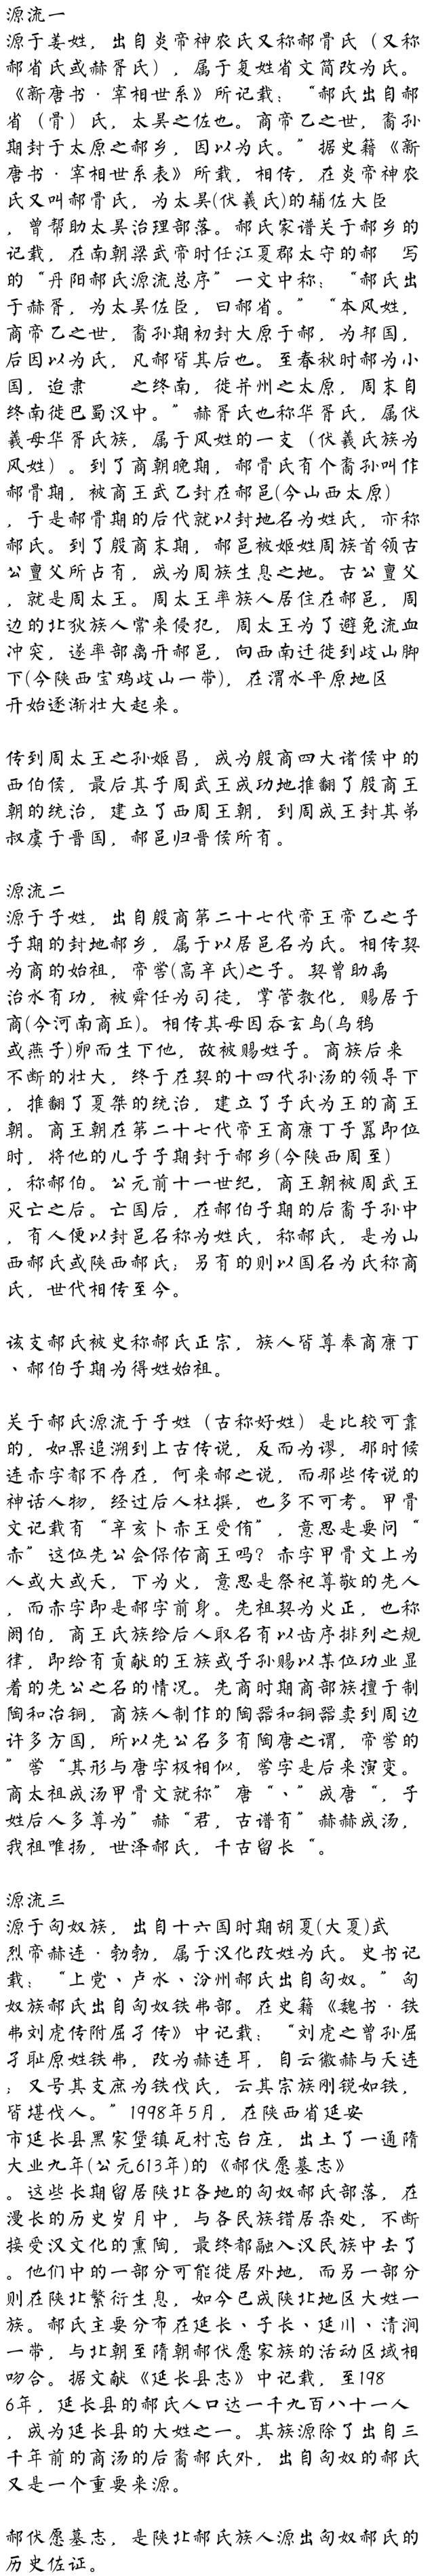 源流一
源于姜姓，出自炎帝神农氏又称郝骨氏（又称
郝省氏或赫胥氏），属于复姓省文简改为氏。
《新唐书·宰相世系》所记载：“郝氏出自郝
省（骨）氏，太昊之佐也。商帝乙之世，裔孙
期封于太原之郝乡，因以为氏。”据史籍《新
唐书·宰相世系表》所载，相传，在炎帝神农
氏又叫郝骨氏，为太昊(伏羲氏)的辅佐大臣
，曾帮助太昊治理部落。郝氏家谱关于郝乡的
记载，在南朝梁武帝时任江夏郡太守的郝　写
的“丹阳郝氏源流总序”一文中称：“郝氏出
于赫胥，为太昊佐臣，曰郝省。”“本风姓，
商帝乙之世，裔孙期初封大原于郝，为邦国，
后因以为氏，凡郝皆其后也。至春秋时郝为小
国，迨隶　　之终南，徙并州之太原，周末自
终南徙巴蜀汉中。”赫胥氏也称华胥氏，属伏
羲母华胥氏族，属于风姓的一支（伏羲氏族为
风姓）。到了商朝晚期，郝骨氏有个裔孙叫作
郝骨期，被商王武乙封在郝邑(今山西太原)
，于是郝骨期的后代就以封地名为姓氏，亦称
郝氏。到了殷商末期，郝邑被姬姓周族首领古
公亶父所占有，成为周族生息之地。古公亶父
，就是周太王。周太王率族人居住在郝邑，周
边的北狄族人常来侵犯，周太王为了避免流血
冲突，遂率部离开郝邑，向西南迁徙到歧山脚
下(今陕西宝鸡歧山一带)，在渭水平原地区
开始逐渐壮大起来。
传到周太王之孙姬昌，成为殷商四大诸侯中的
西伯侯，最后其子周武王成功地推翻了殷商王
朝的统治，建立了西周王朝，到周成王封其弟
叔虞于晋国，郝邑归晋侯所有。
源流二
源于子姓，出自殷商第二十七代帝王帝乙之子
子期的封地郝乡，属于以居邑名为氏。相传契
为商的始祖，帝喾(高辛氏)之子。契曾助禹
治水有功，被舜任为司徒，掌管教化，赐居于
商(今河南商丘)。相传其母因吞玄鸟(乌鸦
或燕子)卵而生下他，故被赐姓子。商族后来
不断的壮大，终于在契的十四代孙汤的领导下
，推翻了夏桀的统治，建立了子氏为王的商王
朝。商王朝在第二十七代帝王商康丁子嚣即位
时，将他的儿子子期封于郝乡(今陕西周至)
，称郝伯。公元前十一世纪，商王朝被周武王
灭亡之后。亡国后，在郝伯子期的后裔子孙中
，有人便以封邑名称为姓氏，称郝氏，是为山
西郝氏或陕西郝氏；另有的则以国名为氏称商
氏，世代相传至今。
该支郝氏被史称郝氏正宗，族人皆尊奉商康丁
、郝伯子期为得姓始祖。
关于郝氏源流于子姓（古称好姓）是比较可靠
的，如果追溯到上古传说，反而为谬，那时候
连赤字都不存在，何来郝之说，而那些传说的
神话人物，经过后人杜撰，也多不可考。甲骨
文记载有“辛亥卜赤王受侑”，意思是要问“
赤”这位先公会保佑商王吗？赤字甲骨文上为
人或大或天，下为火，意思是祭祀尊敬的先人
，而赤字即是郝字前身。先祖契为火正，也称
阏伯，商王氏族给后人取名有以齿序排列之规
律，即给有贡献的王族或子孙赐以某位功业显
着的先公之名的情况。先商时期商部族擅于制
陶和冶铜，商族人制作的陶器和铜器卖到周边
许多方国，所以先公名多有陶唐之谓，帝喾的
”喾“其形与唐字极相似，喾字是后来演变。
商太祖成汤甲骨文就称”唐“、”成唐“，子
姓后人多尊为”赫“君，古谱有”赫赫成汤，
我祖唯扬，世泽郝氏，千古留长“。
源流三
源于匈奴族，出自十六国时期胡夏(大夏)武
烈帝赫连·勃勃，属于汉化改姓为氏。史书记
载：“上党、卢水、汾州郝氏出自匈奴。”匈
奴族郝氏出自匈奴铁弗部。在史籍《魏书·铁
弗刘虎传附屈孑传》中记载：“刘虎之曾孙屈
孑耻原姓铁弗，改为赫连耳，自云徽赫与天连
；又号其支庶为铁伐氏，云其宗族刚锐如铁，
皆堪伐人。”1998年5月，在陕西省延安
市延长县黑家堡镇瓦村忘台庄，出土了一通隋
大业九年(公元613年)的《郝伏愿墓志》
。这些长期留居陕北各地的匈奴郝氏部落，在
漫长的历史岁月中，与各民族错居杂处，不断
接受汉文化的熏陶，最终都融入汉民族中去了
。他们中的一部分可能徙居外地，而另一部分
则在陕北繁衍生息，如今已成陕北地区大姓一
族。郝氏主要分布在延长、子长、延川、清涧
一带，与北朝至隋朝郝伏愿家族的活动区域相
吻合。据文献《延长县志》中记载，至198
6年，延长县的郝氏人口达一千九百八十一人
，成为延长县的大姓之一。其族源除了出自三
千年前的商汤的后裔郝氏外，出自匈奴的郝氏
又是一个重要来源。
郝伏愿墓志，是陕北郝氏族人源出匈奴郝氏的
历史佐证。